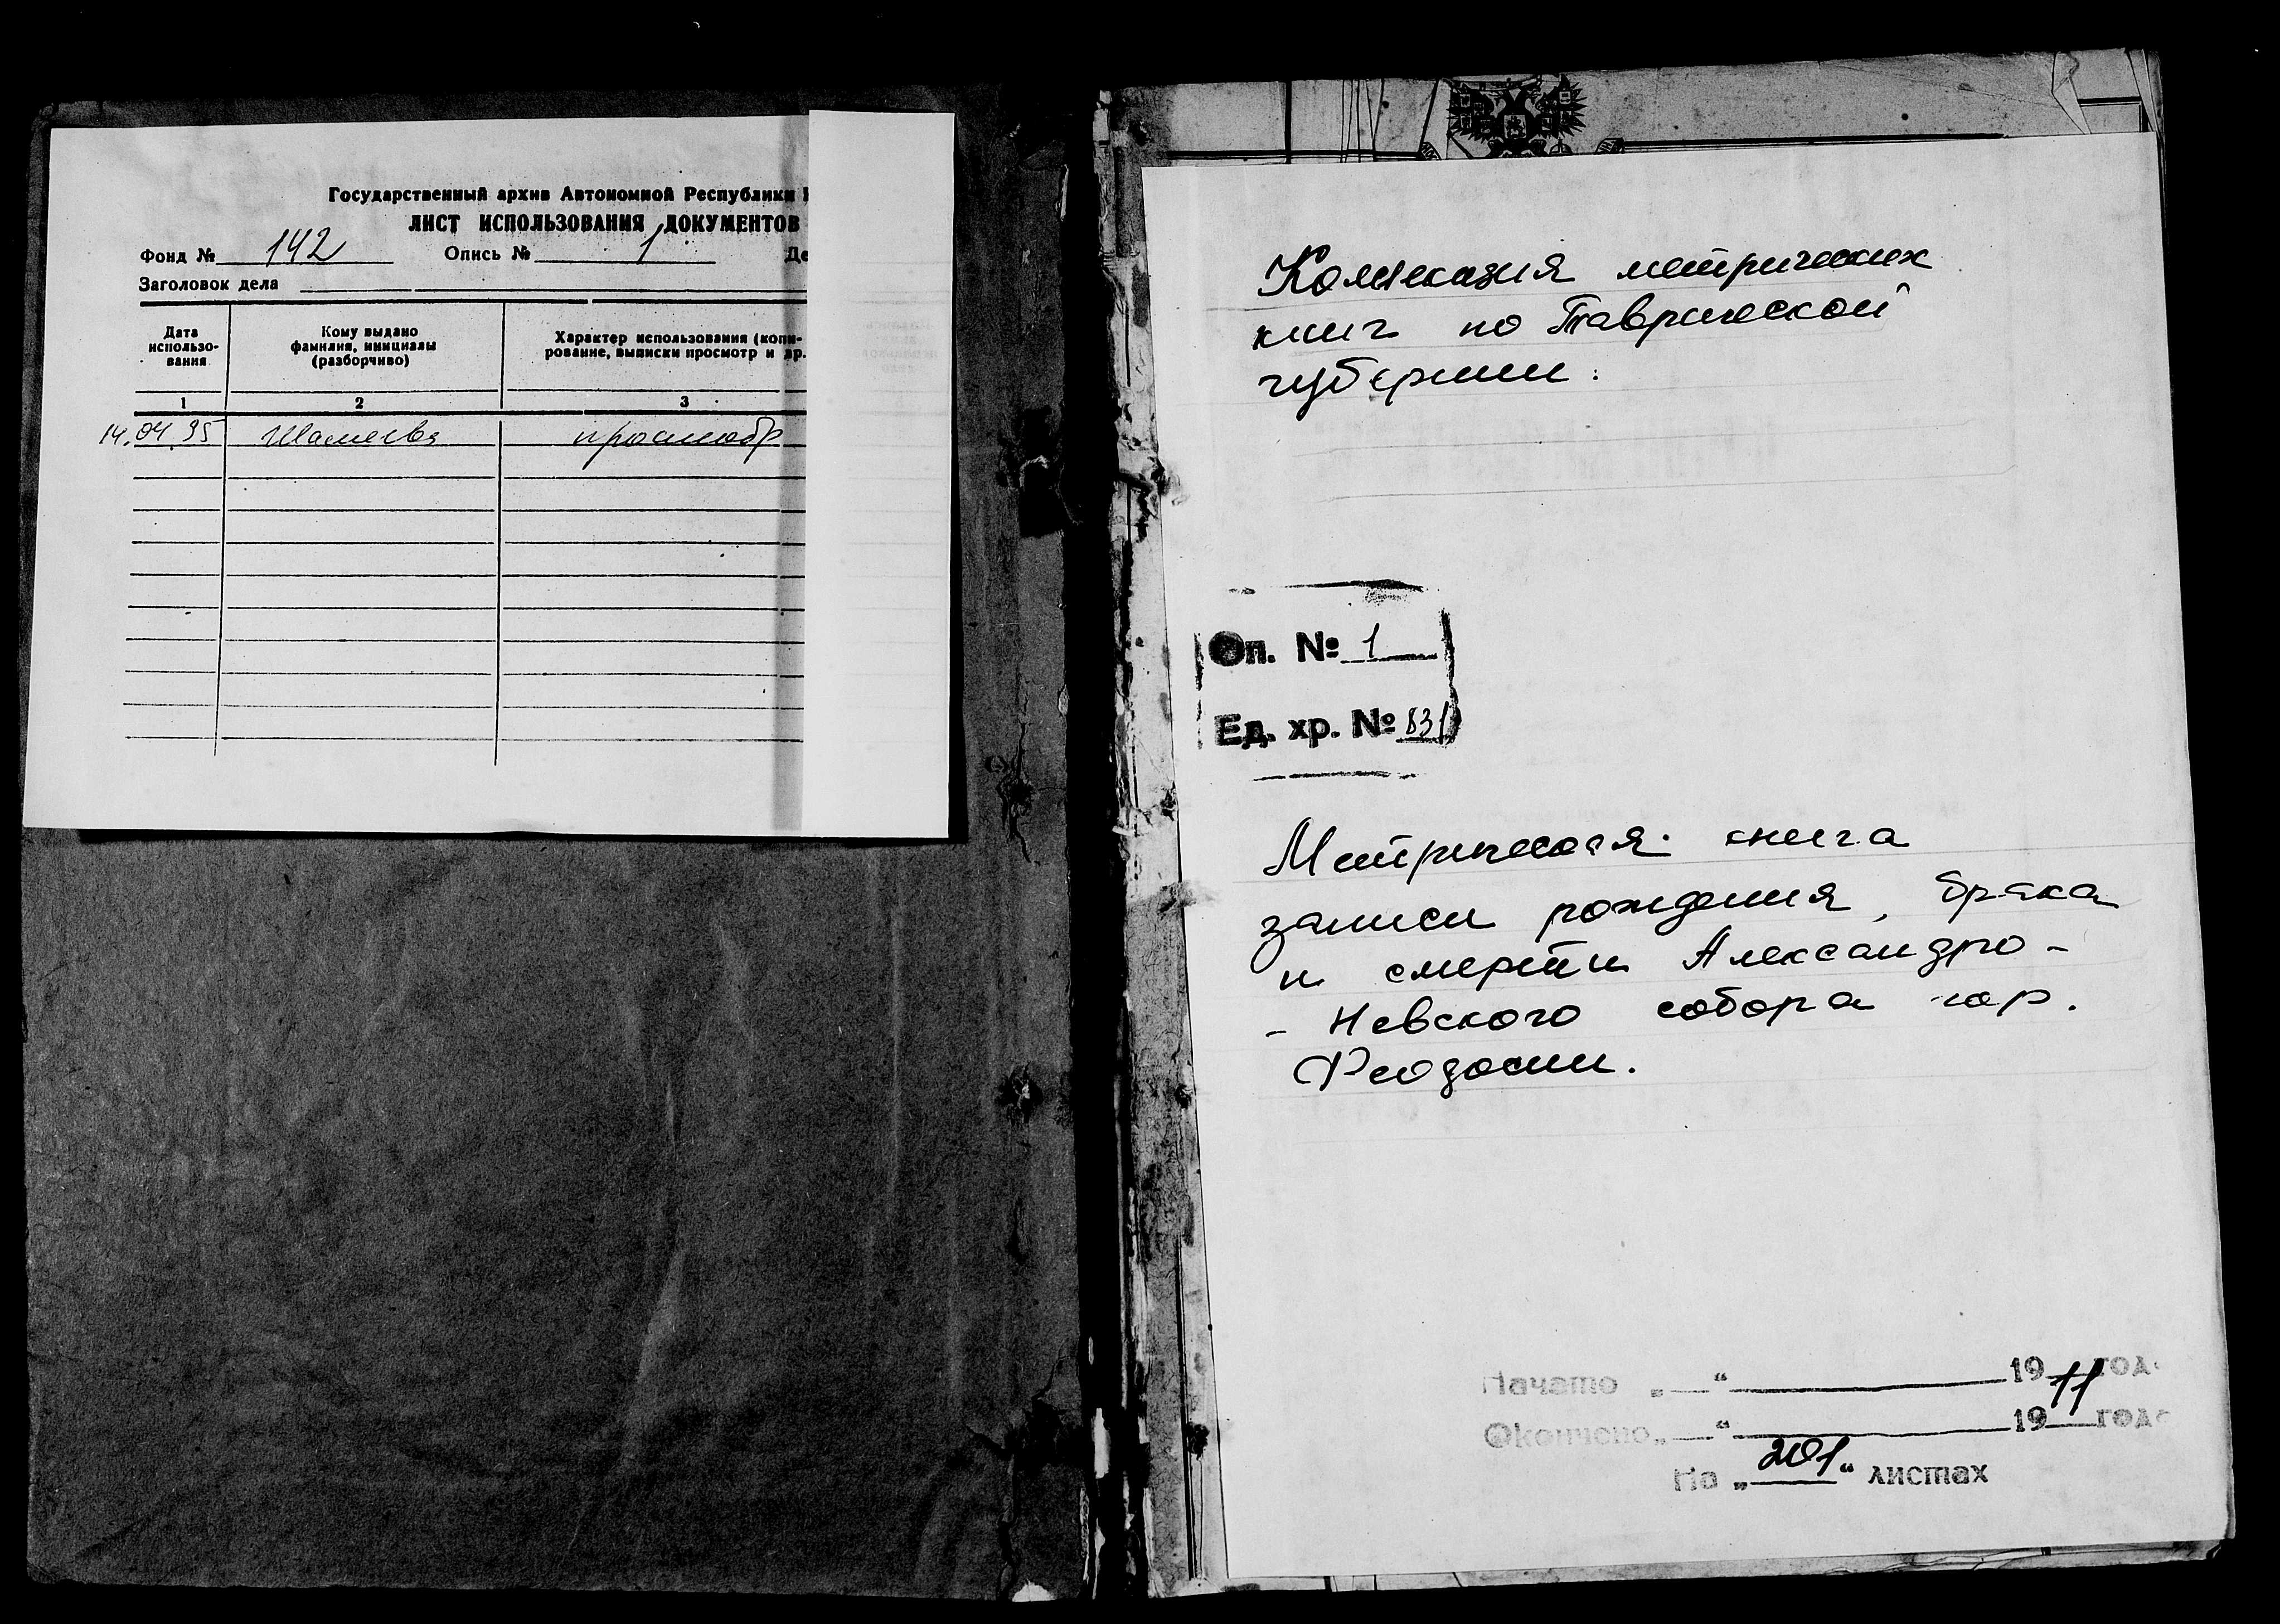 Государственный архив Автономной Республики
ЛИСТ ИСПОЛЬЗОВАНИЯ ДОКУМЕНТОВ
Фонд № 142 Опись № 1 Де
Заголовок дела
Дата использо-вания
Кому выдано фамилия, инициалы (разборчиво)
Характер использования (копи-рование, выписки просмотр и др.
1 2 3
14.04.95 просмотр
Коллекция метрических
книг по Таврической
губернии.
Оп. № 1
Ед. хр. № 831
Метрическая книга
записи рождения, брака
и смерти Александро-
- Невского собора гор.
Феодосии.
Начато „ “ 1911 года
Окончено „ “ 19 года
На „201“ листах